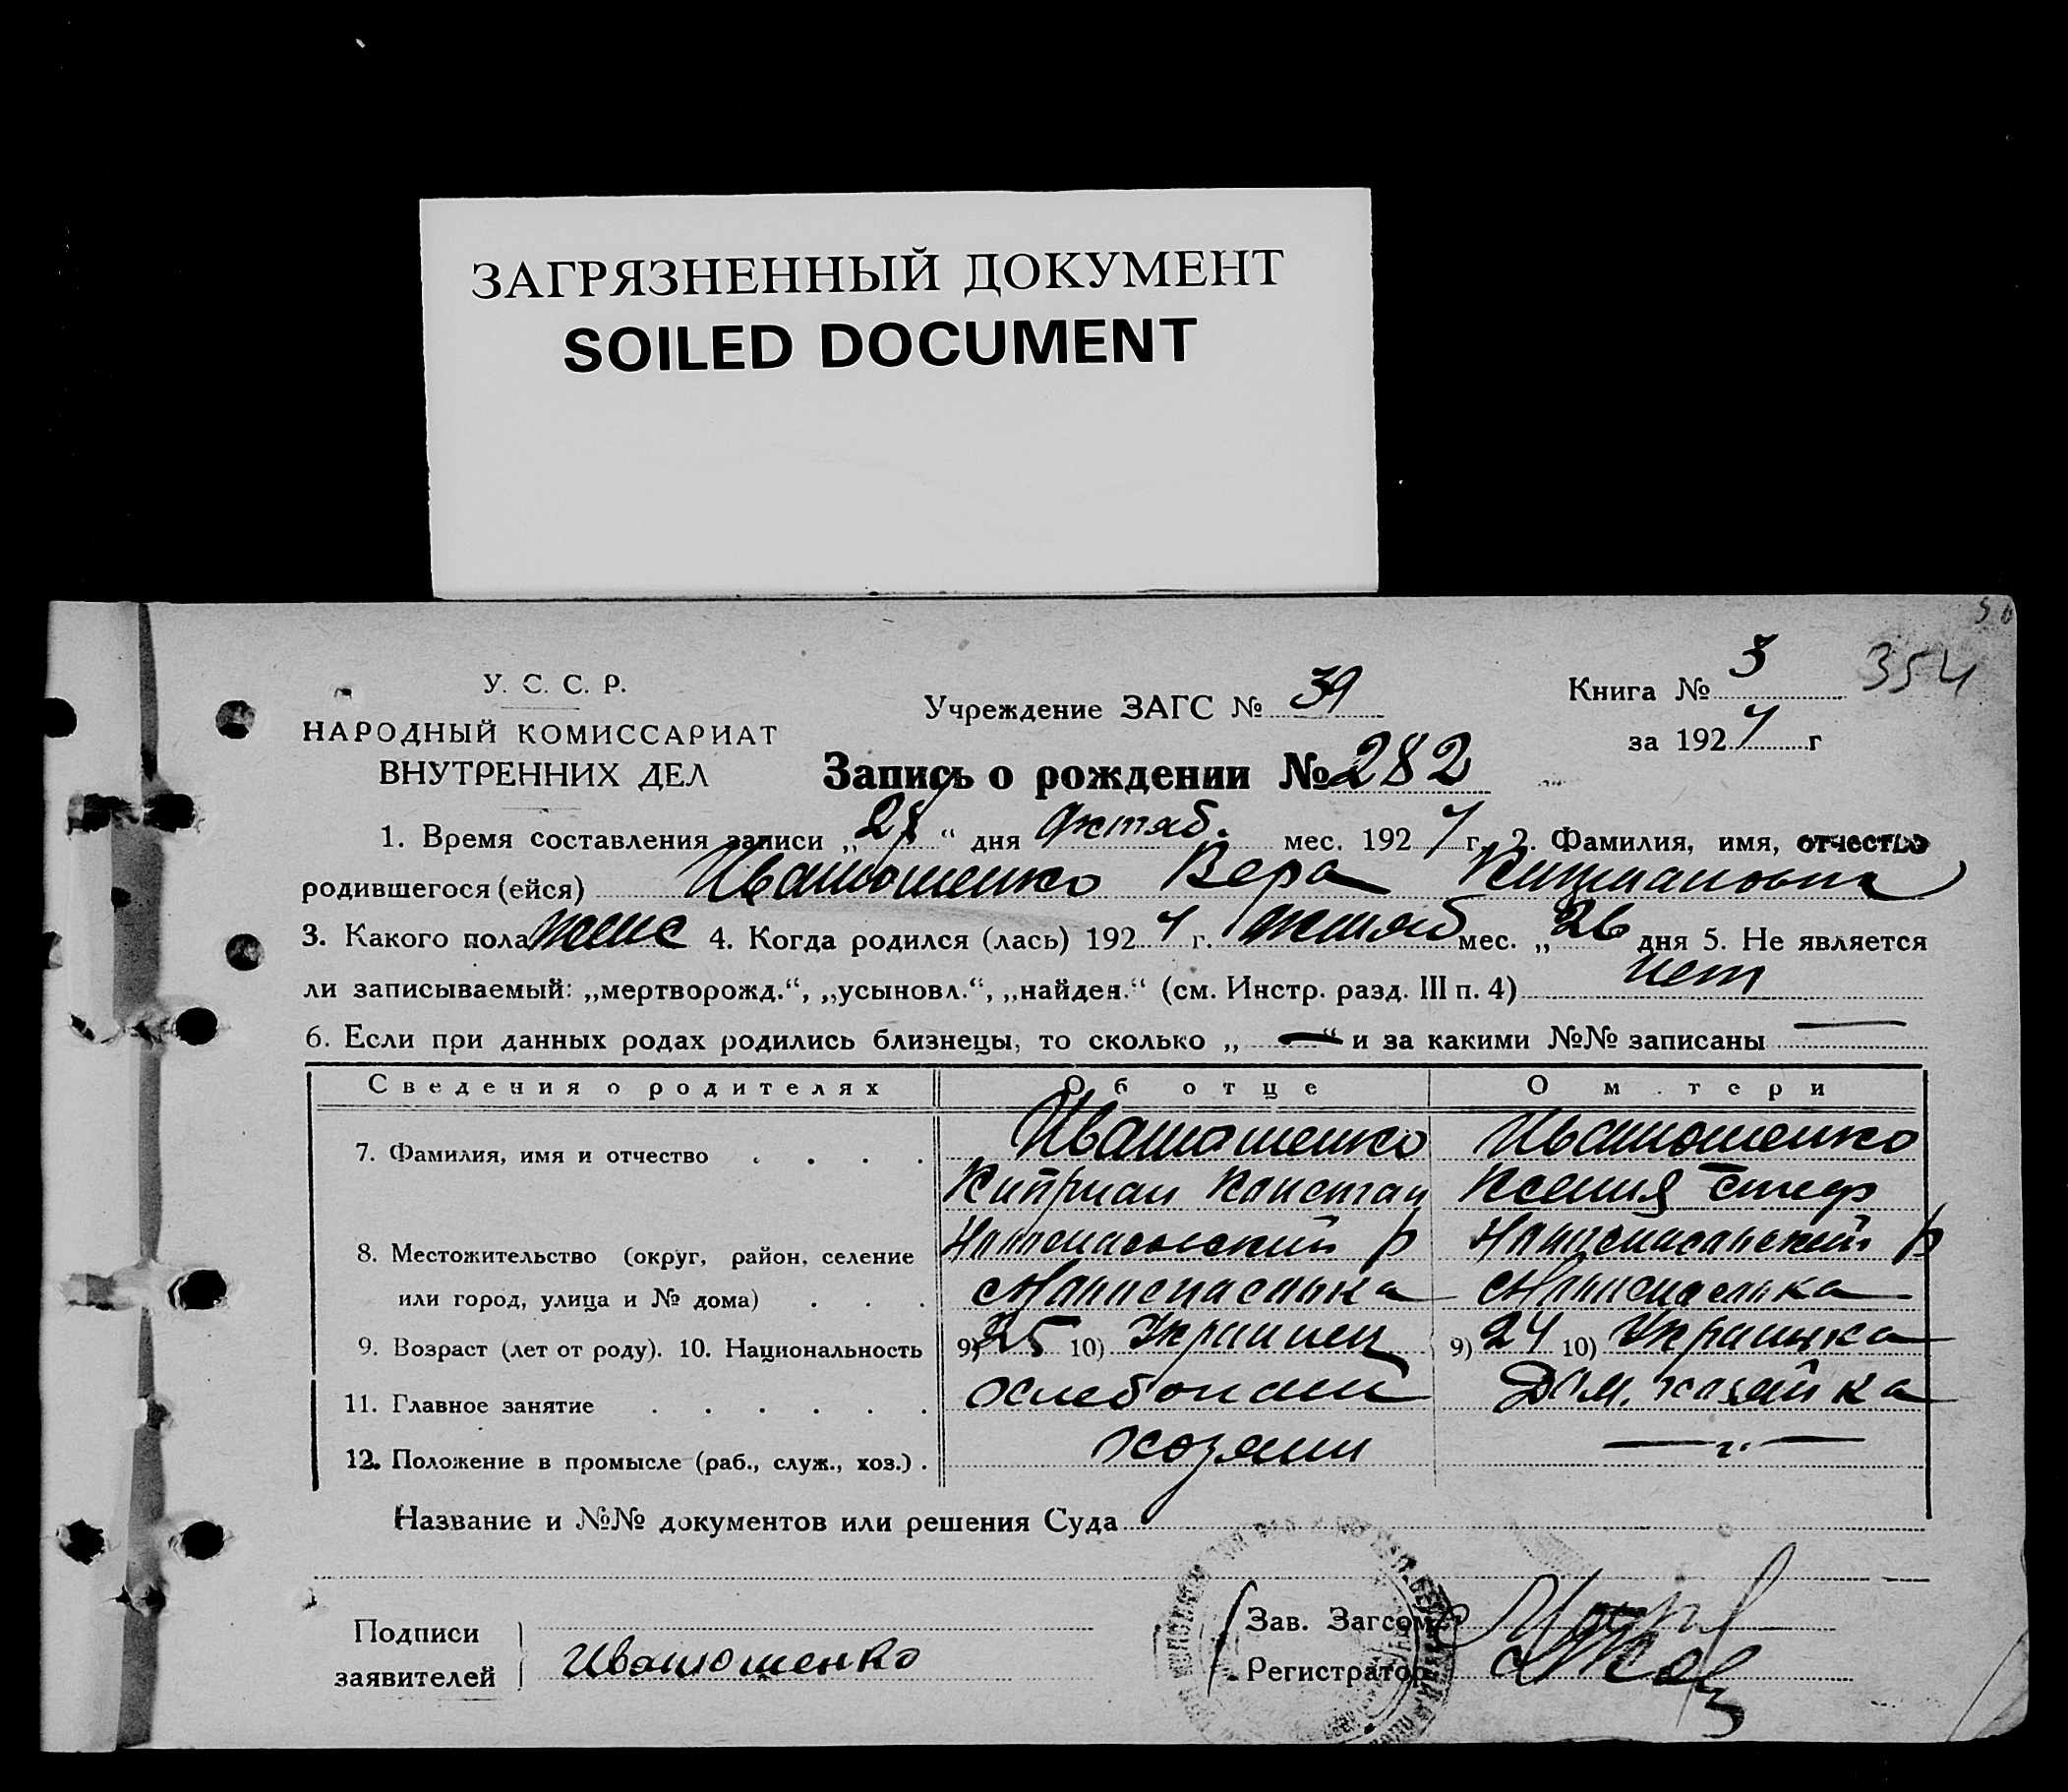 ЗАГРЯЗНЕННЫЙ ДОКУМЕНТ
SOILED DOCUMENT
354
У. С. С. Р.
НАРОДНЫЙ КОМИССАРИАТ
ВНУТРЕННИХ ДЕЛ
Учреждение ЗАГС № 39
Книга № 3
за 1927 г
Запись о рождении № 282
1. Время составления записи „28“ дня Октяб. мес. 1927 г. 2. Фамилия, имя, отчество
родившегося (ейся) Иватошенко Вера Киприановна
3. Какого пола женс 4. Когда родился (лась) 1927 г. октяб мес. „26 дня 5. Не является
ли записываемый: „мертворожд.“, „усыновл.“, „найден.“ (см. Инстр. разд. III п. 4) нет
6. Если при данных родах родились близнецы, то сколько „ — “ и за какими №№ записаны —
Сведения о родителях Об отце О м тери
7. Фамилия, имя и отчество . . . . Иватошенко Иватошенко
Киприан Констан Ксения Стеф
8. Местожительство (округ, район, селение р р
или город, улица и № дома) . . .
9. Возраст (лет от роду). 10. Национальность 9) 25 10) Украинец 9) 24 10) Украинка
11. Главное занятие . . . . . . Хлебопаш Дом. хозяйка
12. Положение в промысле (раб., служ., хоз.) . хозяин — „ —
Название и №№ документов или решения Суда
Подписи
заявителей Иватошенко
Зав. Загсом
Регистратор